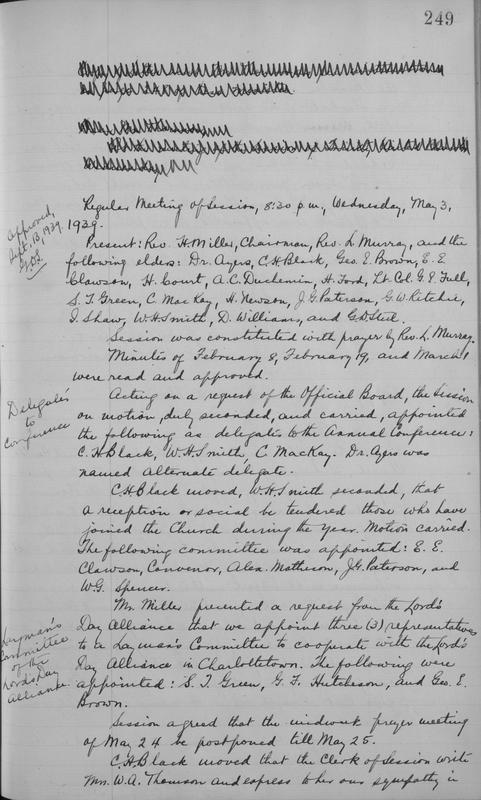 249
Regular Meeting of Session, 8:30 p.m., Wednesday, May 3,
1939.
Approved,
Sept. 13, 1939.
Present: Rev. H. Miller, Chairman, Rev. L. Murray, and the
following elders: Dr. Ayers, C.H. Black, Geo. E. Brown, E.E.
Clawson, H. Court, A.C. Duchemin, H. Ford, Lt. Col. G.E. Full,
S.T. Green, C. MacKay, H. Newson, J.G. Paterson, G.W. Ritchie,
I. Shaw, W.H. Smith, D. William, and G.D. Steel.
Session was constituted with prayer by Rev. L. Murray.
Minutes of February 8, February 19, and March 1
were read and approved.
Delegates
to
Conference
Acting on a request of the Official Board, the Session
on motion, duly seconded, and carried, appointed
the following as delegates to the Annual Conference:
C.H. Black, W.H. Smith, C. MacKay. Dr. Ayers was
named alternate delegate.
C.H. Black moved, W.H. Smith seconded, that
a reception or social be tendered those who have
joined the Church during the year. Motion carried.
The following committee was appointed: E.E.
Clawson, Convenor, Alex. Matheson, J.G. Paterson, and
W.G. Spencer.
Layman's
Committee
of the
Lord's Day
Alliance.
Mr. Miller presented a request from the Lord's
Day Alliance that we appoint three (3) representatives
to a Layman's Committee to cooperate with the Lord's
Day Alliance in Charlottetown. The following were
appointed: S.T. Green, G.F. Hutcheson, and Geo. E.
Brown.
Session agreed that the midweek prayer meeting
of May 24 be postponed till May 25.
C.H. Black moved that the Clerk of Session write
Mrs. W.A. Thomson and express to her our sympathy in